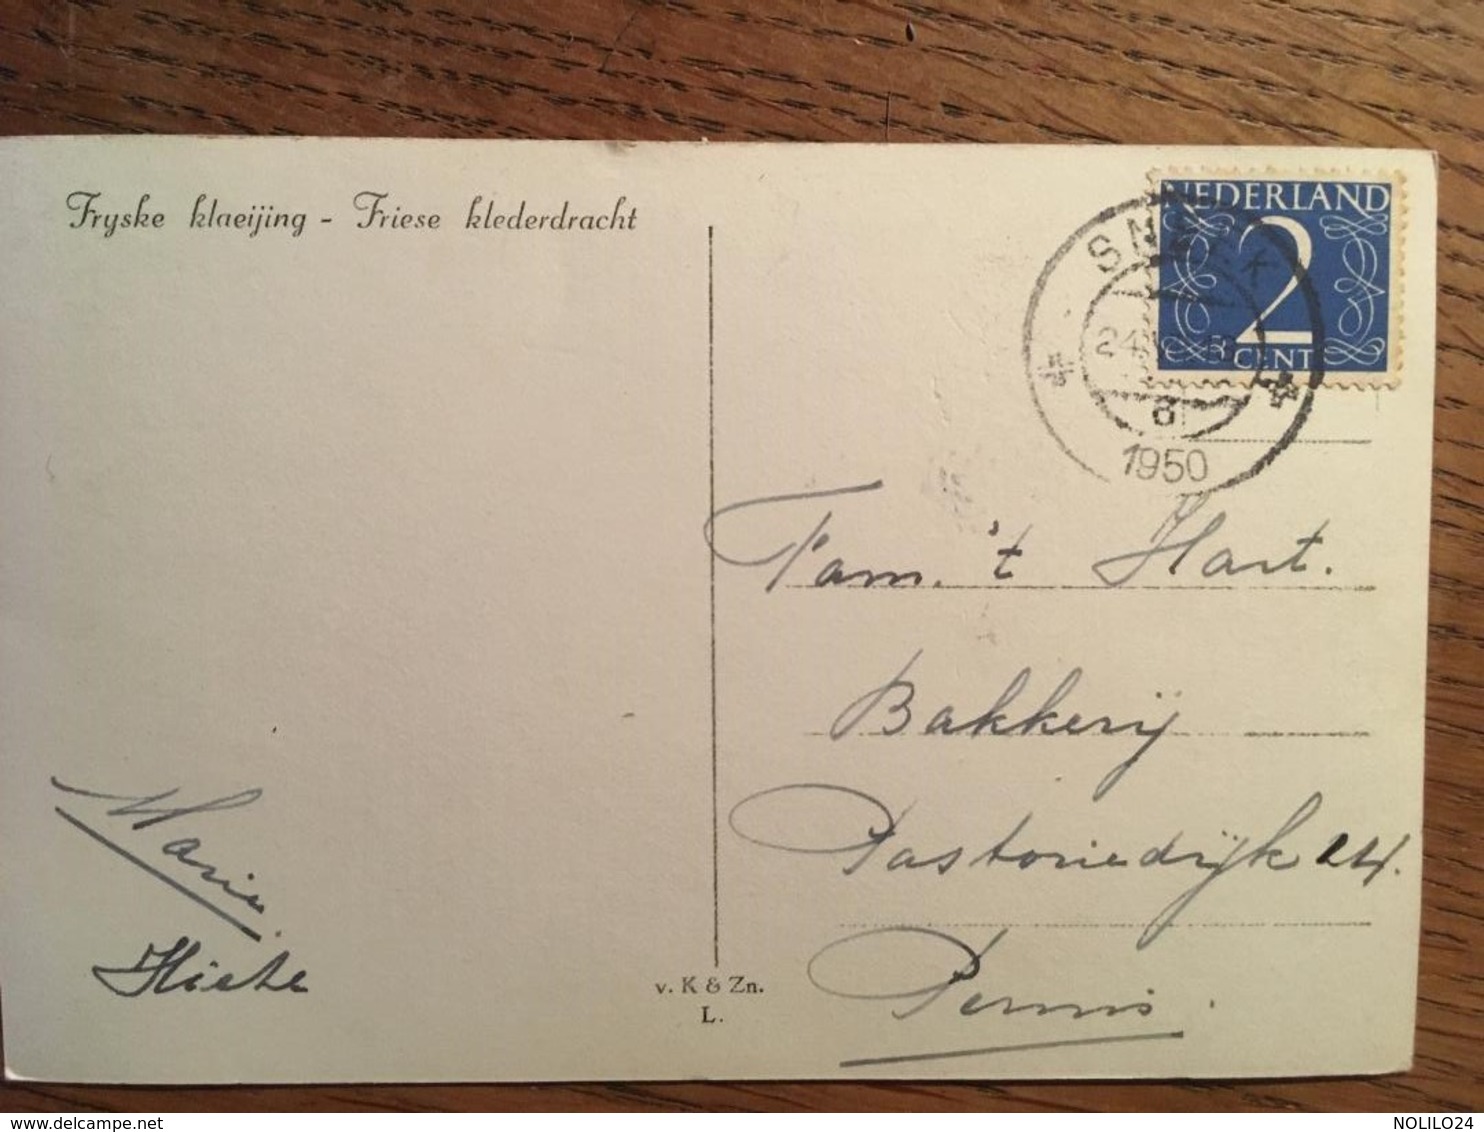 Fryske klaeijing - Friese klederdracht
NEDERLAND
2
CENT
SNEEK
24
8
1950
Fam. 't Hart.
Bakkerij
Pastoriedijk
Pernis.
Marie
v. K & Zn.
L.
www.delcampe.net
NOLILO24